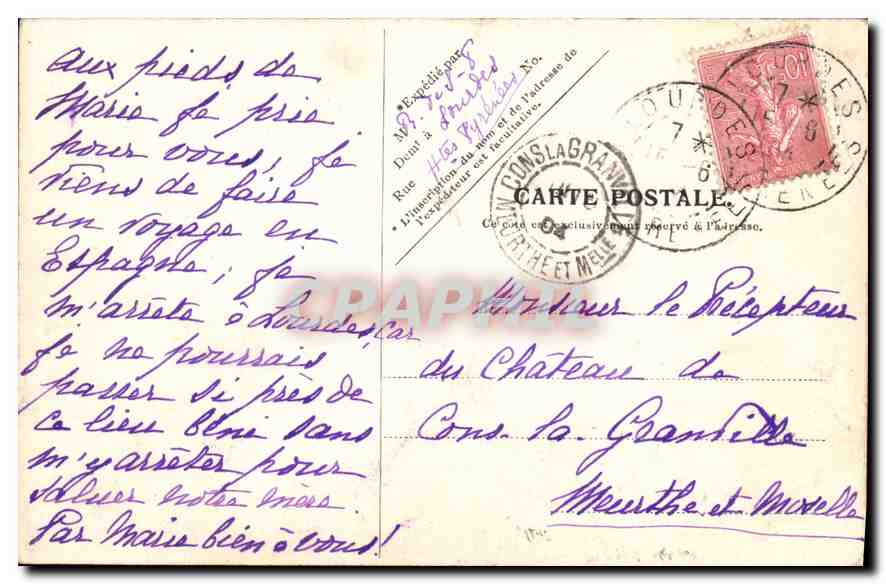 Aux pieds de
Marie je prie
pour vous, je
viens de faire
un voyage en
Espagne, je
m'arrête à Lourdes, car
je ne pourrais
passer si près de
ce lieu béni sans
m'y arrêter pour
saluer notre mère
Par Marie bien à vous!
*Expédié par
M R. de S-S
Demt à Lourdes
Rue Htes Pyrénées No.
* L'inscription du nom et de l'adresse de
l'expéditeur est facultative.
CONS LA GRANVILLE
04
MEURTHE ET MELLE
LOURDES
7 *
6
10
CARTE POSTALE.
Ce côté est exclusivement réservé à l'adresse.
CPAPHIL
Monsieur le Précepteur
du Château de
Cons-la-Granville
Meurthe et Moselle